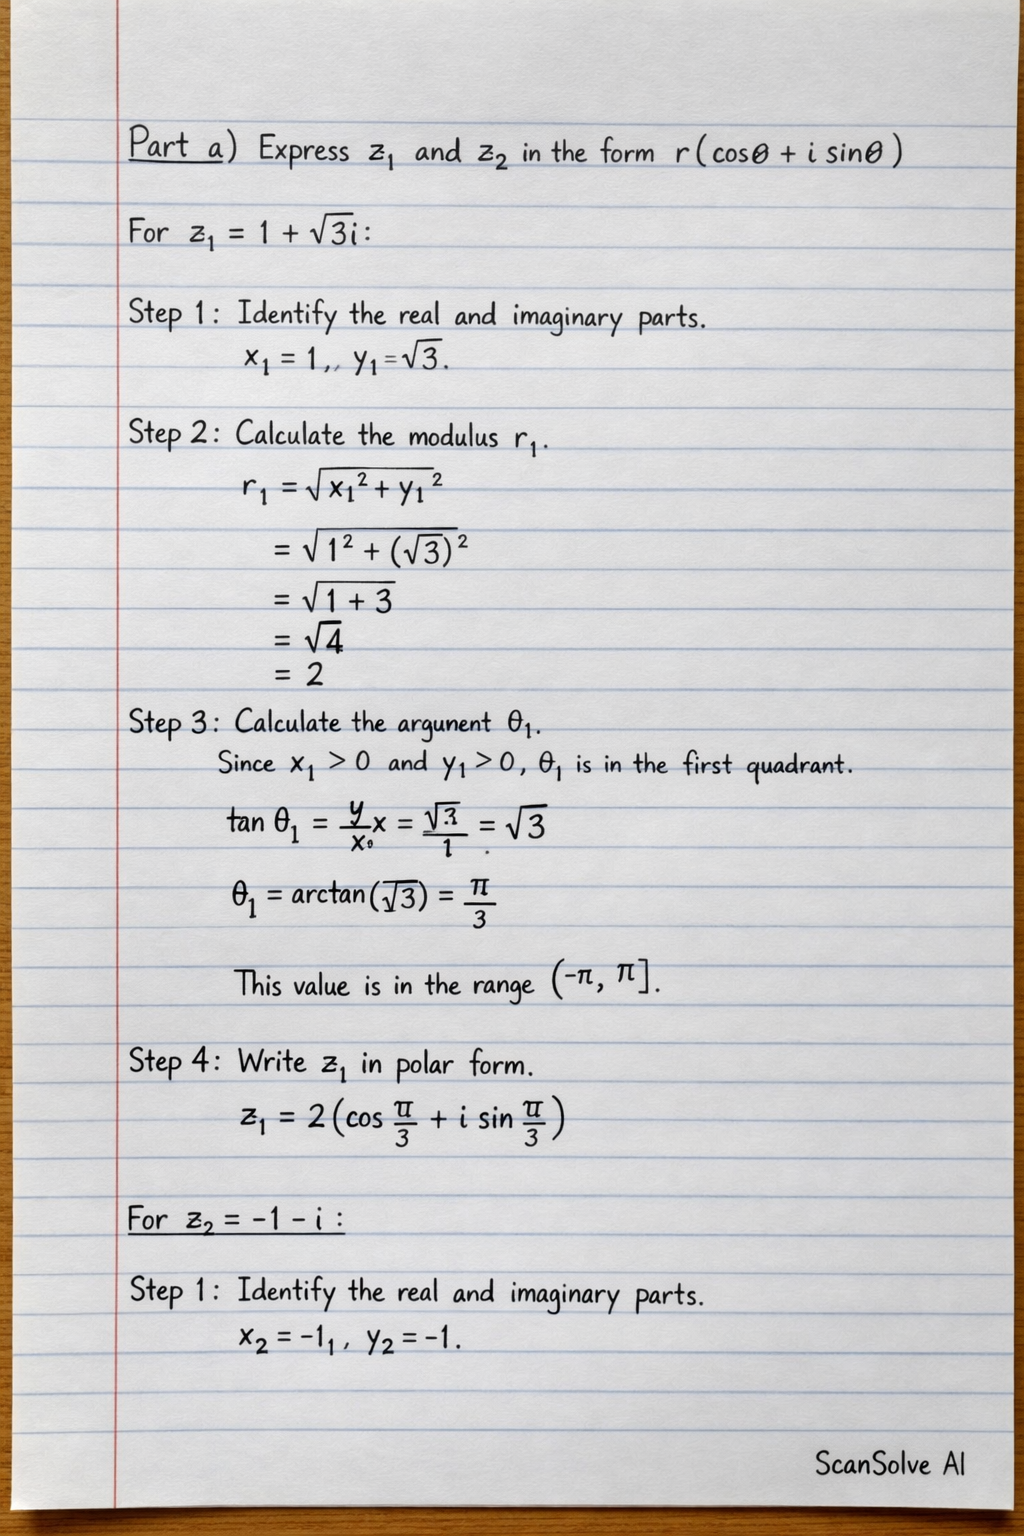 Part a) Express z₁ and z₂ in the form r(cosθ + i sinθ)
For z₁ = 1 + √3i:
Step 1: Identify the real and imaginary parts.
x₁ = 1,, y₁ = √3.
Step 2: Calculate the modulus r₁.
r₁ = √(x₁² + y₁²)
= √(1² + (√3)²)
= √(1 + 3)
= √4
= 2
Step 3: Calculate the argunent θ₁.
Since x₁ > 0 and y₁ > 0, θ₁ is in the first quadrant.
tan θ₁ = y/x₀ x = √3/1 = √3
θ₁ = arctan(√3) = π/3
This value is in the range (-π, π].
Step 4: Write z₁ in polar form.
z₁ = 2(cos π/3 + i sin π/3)
For z₂ = -1 - i :
Step 1: Identify the real and imaginary parts.
x₂ = -1₁, y₂ = -1.
ScanSolve AI